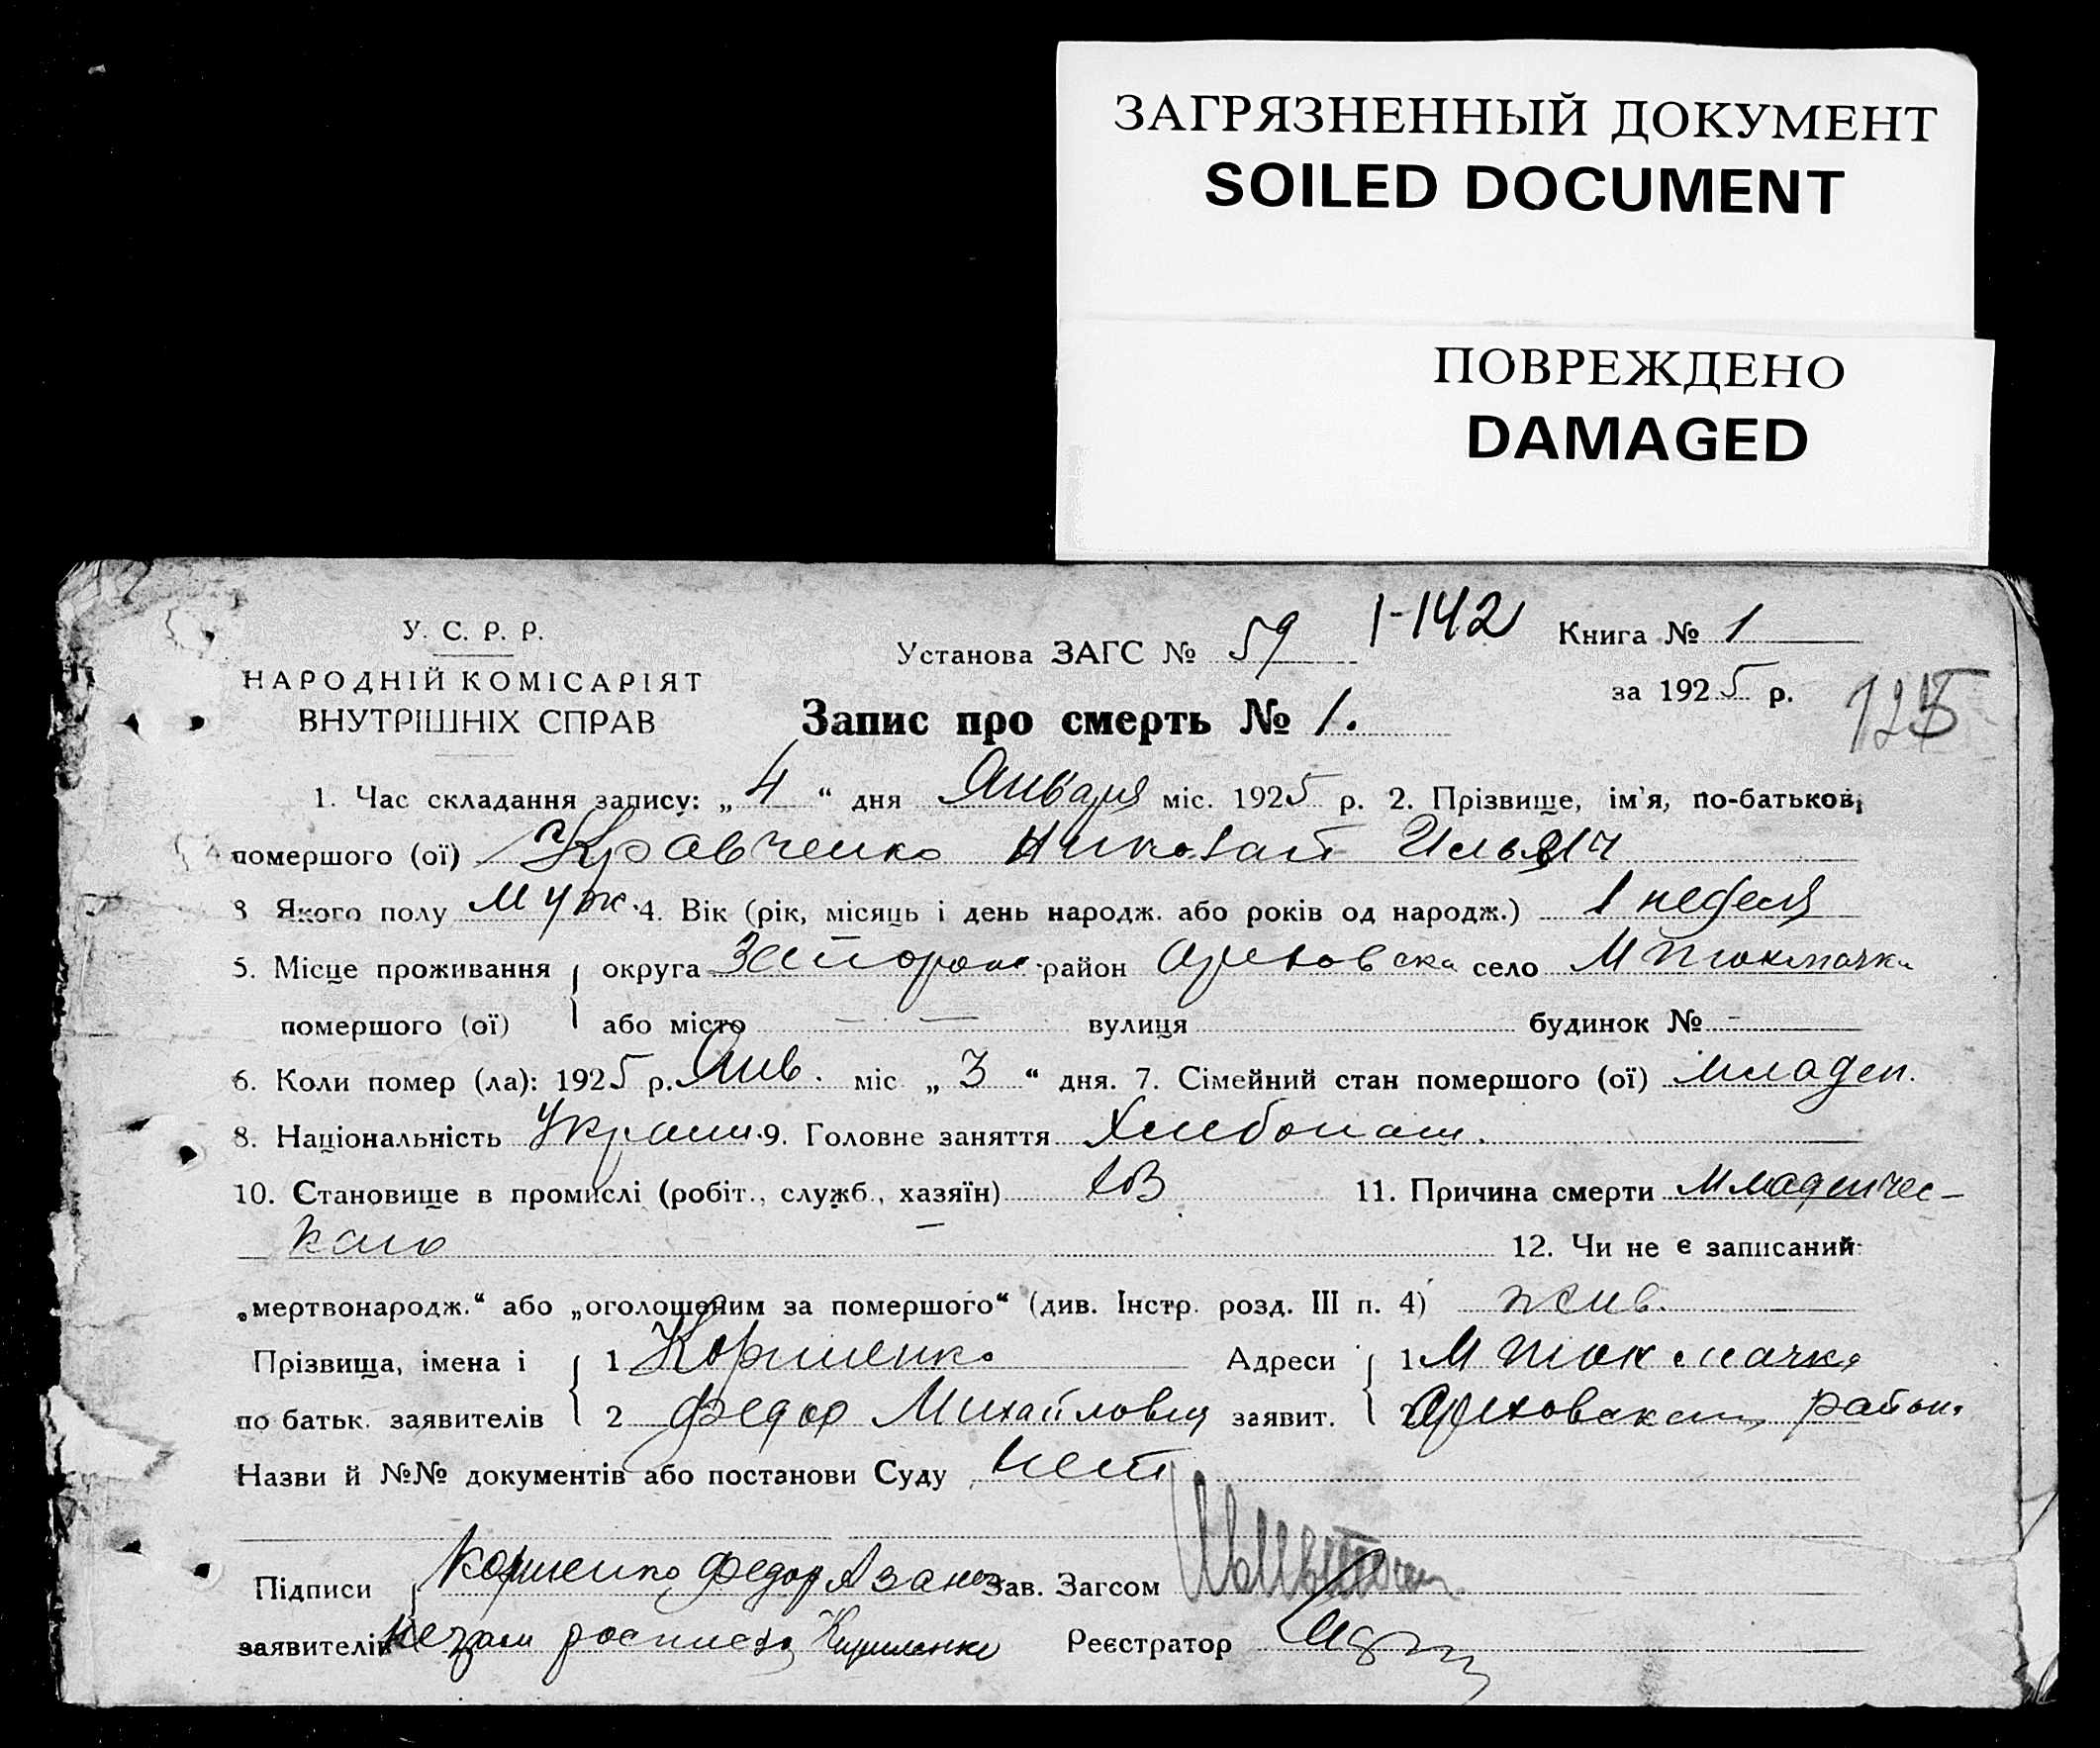 ЗАГРЯЗНЕННЫЙ ДОКУМЕНТ
SOILED DOCUMENT
ПОВРЕЖДЕНО
DAMAGED
У. С. Р. Р.
НАРОДНІЙ КОМІСАРІЯТ
ВНУТРІШНІХ СПРАВ
Установа ЗАГС № 59 1-142 Книга № 1
за 1925 р.
Запис про смерть № 1.
1. Час складання запису: „4“ дня Января міс. 1925 р. 2. Прізвище, ім'я, по-батькові
помершого (ої) Кравченко Николай Ильич
3 Якого полу Муж. 4. Вік (рік, місяць і день народж. або років од народж.) 1 неделя
5. Місце проживання округа Запорож район Ореховска село М Токмачка
помершого (ої) або місто — — вулиця будинок № -
6. Коли помер (ла): 1925 р. Янв. міс „3“ дня. 7. Сімейний стан помершого (ої) младен.
8. Національність Украин. 9. Головне заняття Хлебопаш.
10. Становище в промислі (робіт., служб., хазяїн) 11. Причина смерти Младенчес-
каго — 12. Чи не є записаний:
„мертвонародж.“ або „оголошеним за помершого“ (див. Інстр. розд. III п. 4) жив.
Прізвища, імена і 1 Корниенко Адреси 1 М Токмачка
по батьк. заявителів 2 Федор Михайлович заявит. 2 Ореховскаго район.
Назви й №№ документів або постанови Суду нет
Підписи Корниенко Федор А за него Зав. Загсом
заявителів росписался Реєстратор